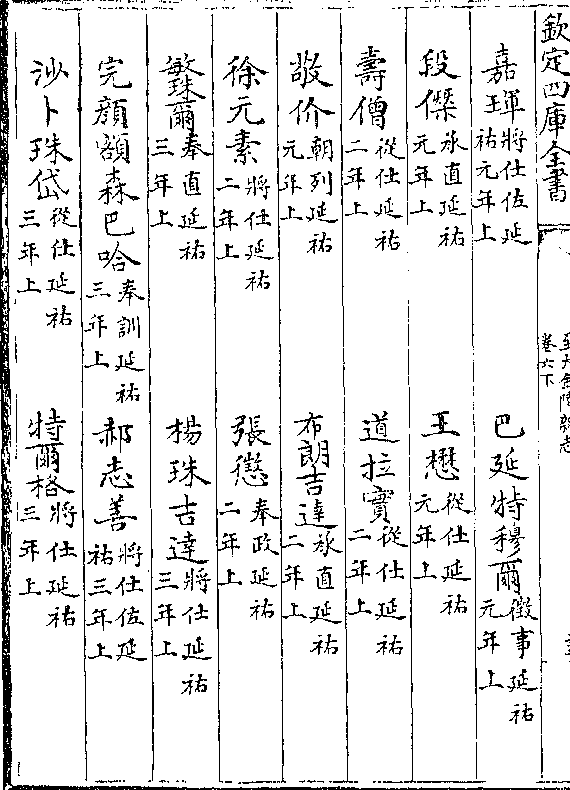 欽定四庫全書
至大金陵新志
卷六下
嘉琿將仕佐延祐元年上 巴延特穆爾徵事延祐元年上
段傑承直延祐元年上 王懋從仕延祐元年上
壽僧從仕延祐二年上 道拉實從仕延祐二年上
敬价朝列延祐元年上 布朗吉達承直延祐二年上
徐元素將仕延祐二年上 張愆奉政延祐二年上
敏珠爾奉直延祐三年上 楊珠吉達將仕延祐三年上
完顔額森巴哈奉訓延祐三年上 郝志善將仕佐延祐三年上
沙卜珠岱從仕延祐三年上 特爾格將仕延祐三年上